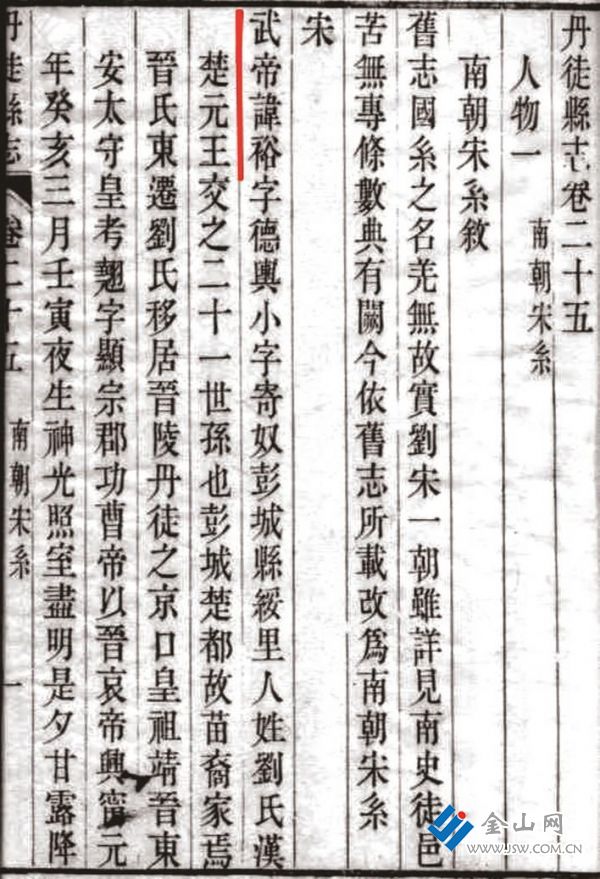 丹徒縣志卷二十五
人物一
南朝宋系
南朝宋系敘
舊志國系之名羌無故實劉宋一朝雖詳見南史徒邑
苦無專條數典有闕今依舊志所載改爲南朝宋系
宋
武帝諱裕字德輿小字寄奴彭城縣綏里人姓劉氏漢
楚元王交之二十一世孫也彭城楚都故苗裔家焉
晉氏東遷劉氏移居晉陵丹徒之京口皇祖靖晉東
安太守皇考翹字顯宗郡功曹帝以晉哀帝興甯元
年癸亥三月壬寅夜生神光照室盡明是夕甘露降
丹徒縣志
卷二十五
南朝宋系
一
金山网
WWW.JSW.COM.CN